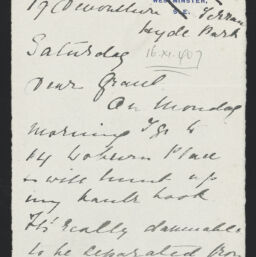 WESTMINSTER,
S.E.
19 Devonshire Terrace
Hyde Park
Saturday
16.XI.407
Dear Grant
On Monday
morning I go to
14 Woburn Place
& will hunt up
my bank book
It's really damnable
to be separated from